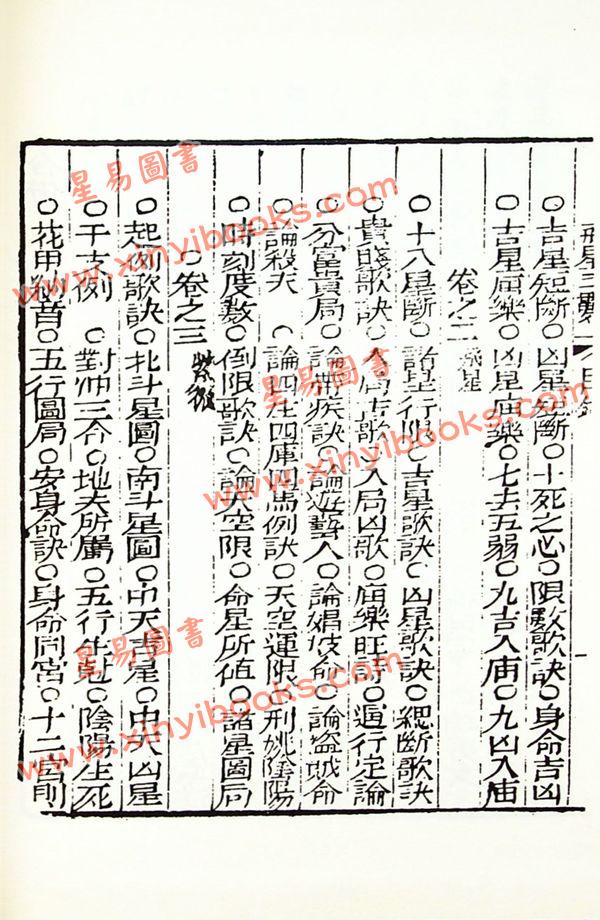 ○吉星短斷○凶星短斷○十死之心○限數歌訣○身命吉凶
○吉星廟樂○凶星廟樂○七去五弱○九吉入庙○九凶入庙
卷之二
○十八星斷○諸星行限○吉星歌訣○凶星歌訣○總斷歌訣
○貴賤歌訣○入局吉歌○入局凶歌○庙樂旺詩○遍行定論
○分富貴局○論帶疾訣○論遊藝人○論娼妓命○論盜賊命
○論殺夫○論四庫四馬例訣○天空運限○刑姚陰陽
○時刻度数○倒限歌訣○論天空限○命星所值○諸星圖局
○卷之三 紫微
○起例歌訣○北斗星圖○南斗星圖○中天吉星○中天凶星
○干支例○對冲三合○地支所屬○五行生尅○陰陽生死
○花甲納音○五行圖局○安身命訣○身命同宮○十二宮則
星易圖書
www.xinyibooks.com
星易圖書
www.xinyibooks.com
星易圖書
www.xinyibooks.com